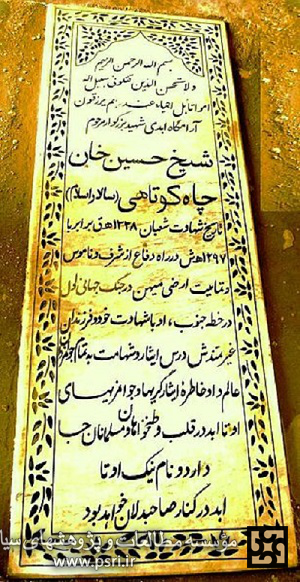 بسم الله الرحمن الرحیم
ولا تحسبن الذین قتلوا فی سبیل الله
امواتا بل احیاء عند ربهم یرزقون
آرامگاه ابدی شهید بزرگوار مرحوم
شیخ حسین خان
چاه کوتاهی (سالار اسلام)
تاریخ شهادت شعبان ۱۳۳۸ هـ ق برابر با
۱۲۹۷ هـ ش در راه دفاع از شرف و ناموس
و تمامیت ارضی میهن در جنگ جهانی اول
در خطه جنوب، او با شهادت خود و فرزندان
غیرتمندش درس ایثار و شهامت به تمام جوانمردان
عالم داد خاطره ایثارگریها و جوانمردیهای
او تا ابد در قلب وطنخواهان و مسلمانان جا
دارد و نام نیک او تا
ابد در کنار صاحبدلان خواهد بود
مؤسسه مطالعات و پژوهشهای سیا
www.psri.ir